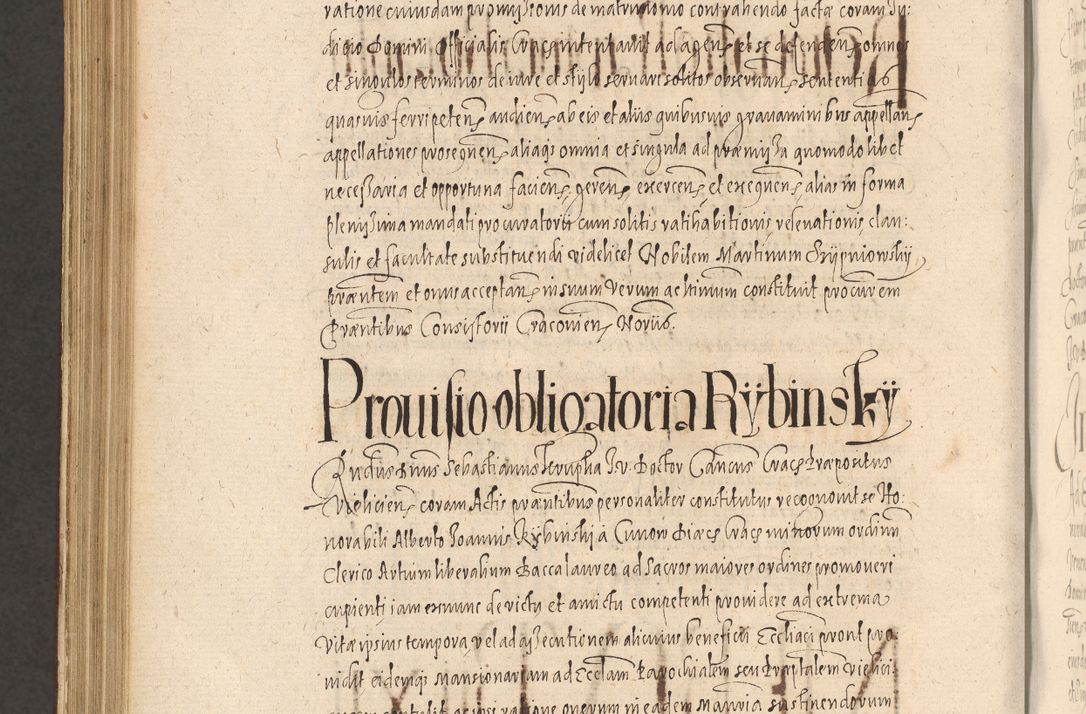 ratione cuiusdam promissionis de matrimonio contrahendo factæ coram Ju:
dicio Domini Officialis Crac: intentavit ad agen: et se defenden: omnes
et singulos terminos de iure et stylo servari solitos observan: sententias
quasvis ferri peten: audien: ab eis et aliis quibusvis gravaminibus appellan:
appellationes prosequen: aliaq; omnia et singula ad præmissa quomodolibet
necessaria et opportuna facien: geren: exercen: et exequen: alias in forma
plenissima mandati procuratorii cum solitis ratihabitionis relevationis clau:
sulis et facultate substituendi videlicet Nobilem Martinum
præntem et onus acceptan: in suum verum ac ltimum constituit procurem
Præntibus Consistorii Cracovien: Noriis.
Provisio obligatoria Rÿbinskÿ
Rndus Dnus Sebastianus Krupka J.V. Doctor Cancus Crac: Præpositus
Vielicien: coram Actis præntibus personaliter constitutus recognovit se Ho:
norabili Alberto Joannis Rÿbinski à Cunow Diæc: Crac: minorum ordinum
Clerico Artium liberalium Baccalaureo ad Sacros maiores ordines promoveri
cupienti iam exnunc de victu et amictu competenti providere ad extrema
vitæ ipsius tempora, vel ad assecutionem alicuius beneficii Eccliaci pront pro:
vidit eidemq; Mansionariam ad Ecclam Parochialem seu Præptalem Vielici:
contulit ac ipsi ratione onerum in eadem Manria sustinendorum